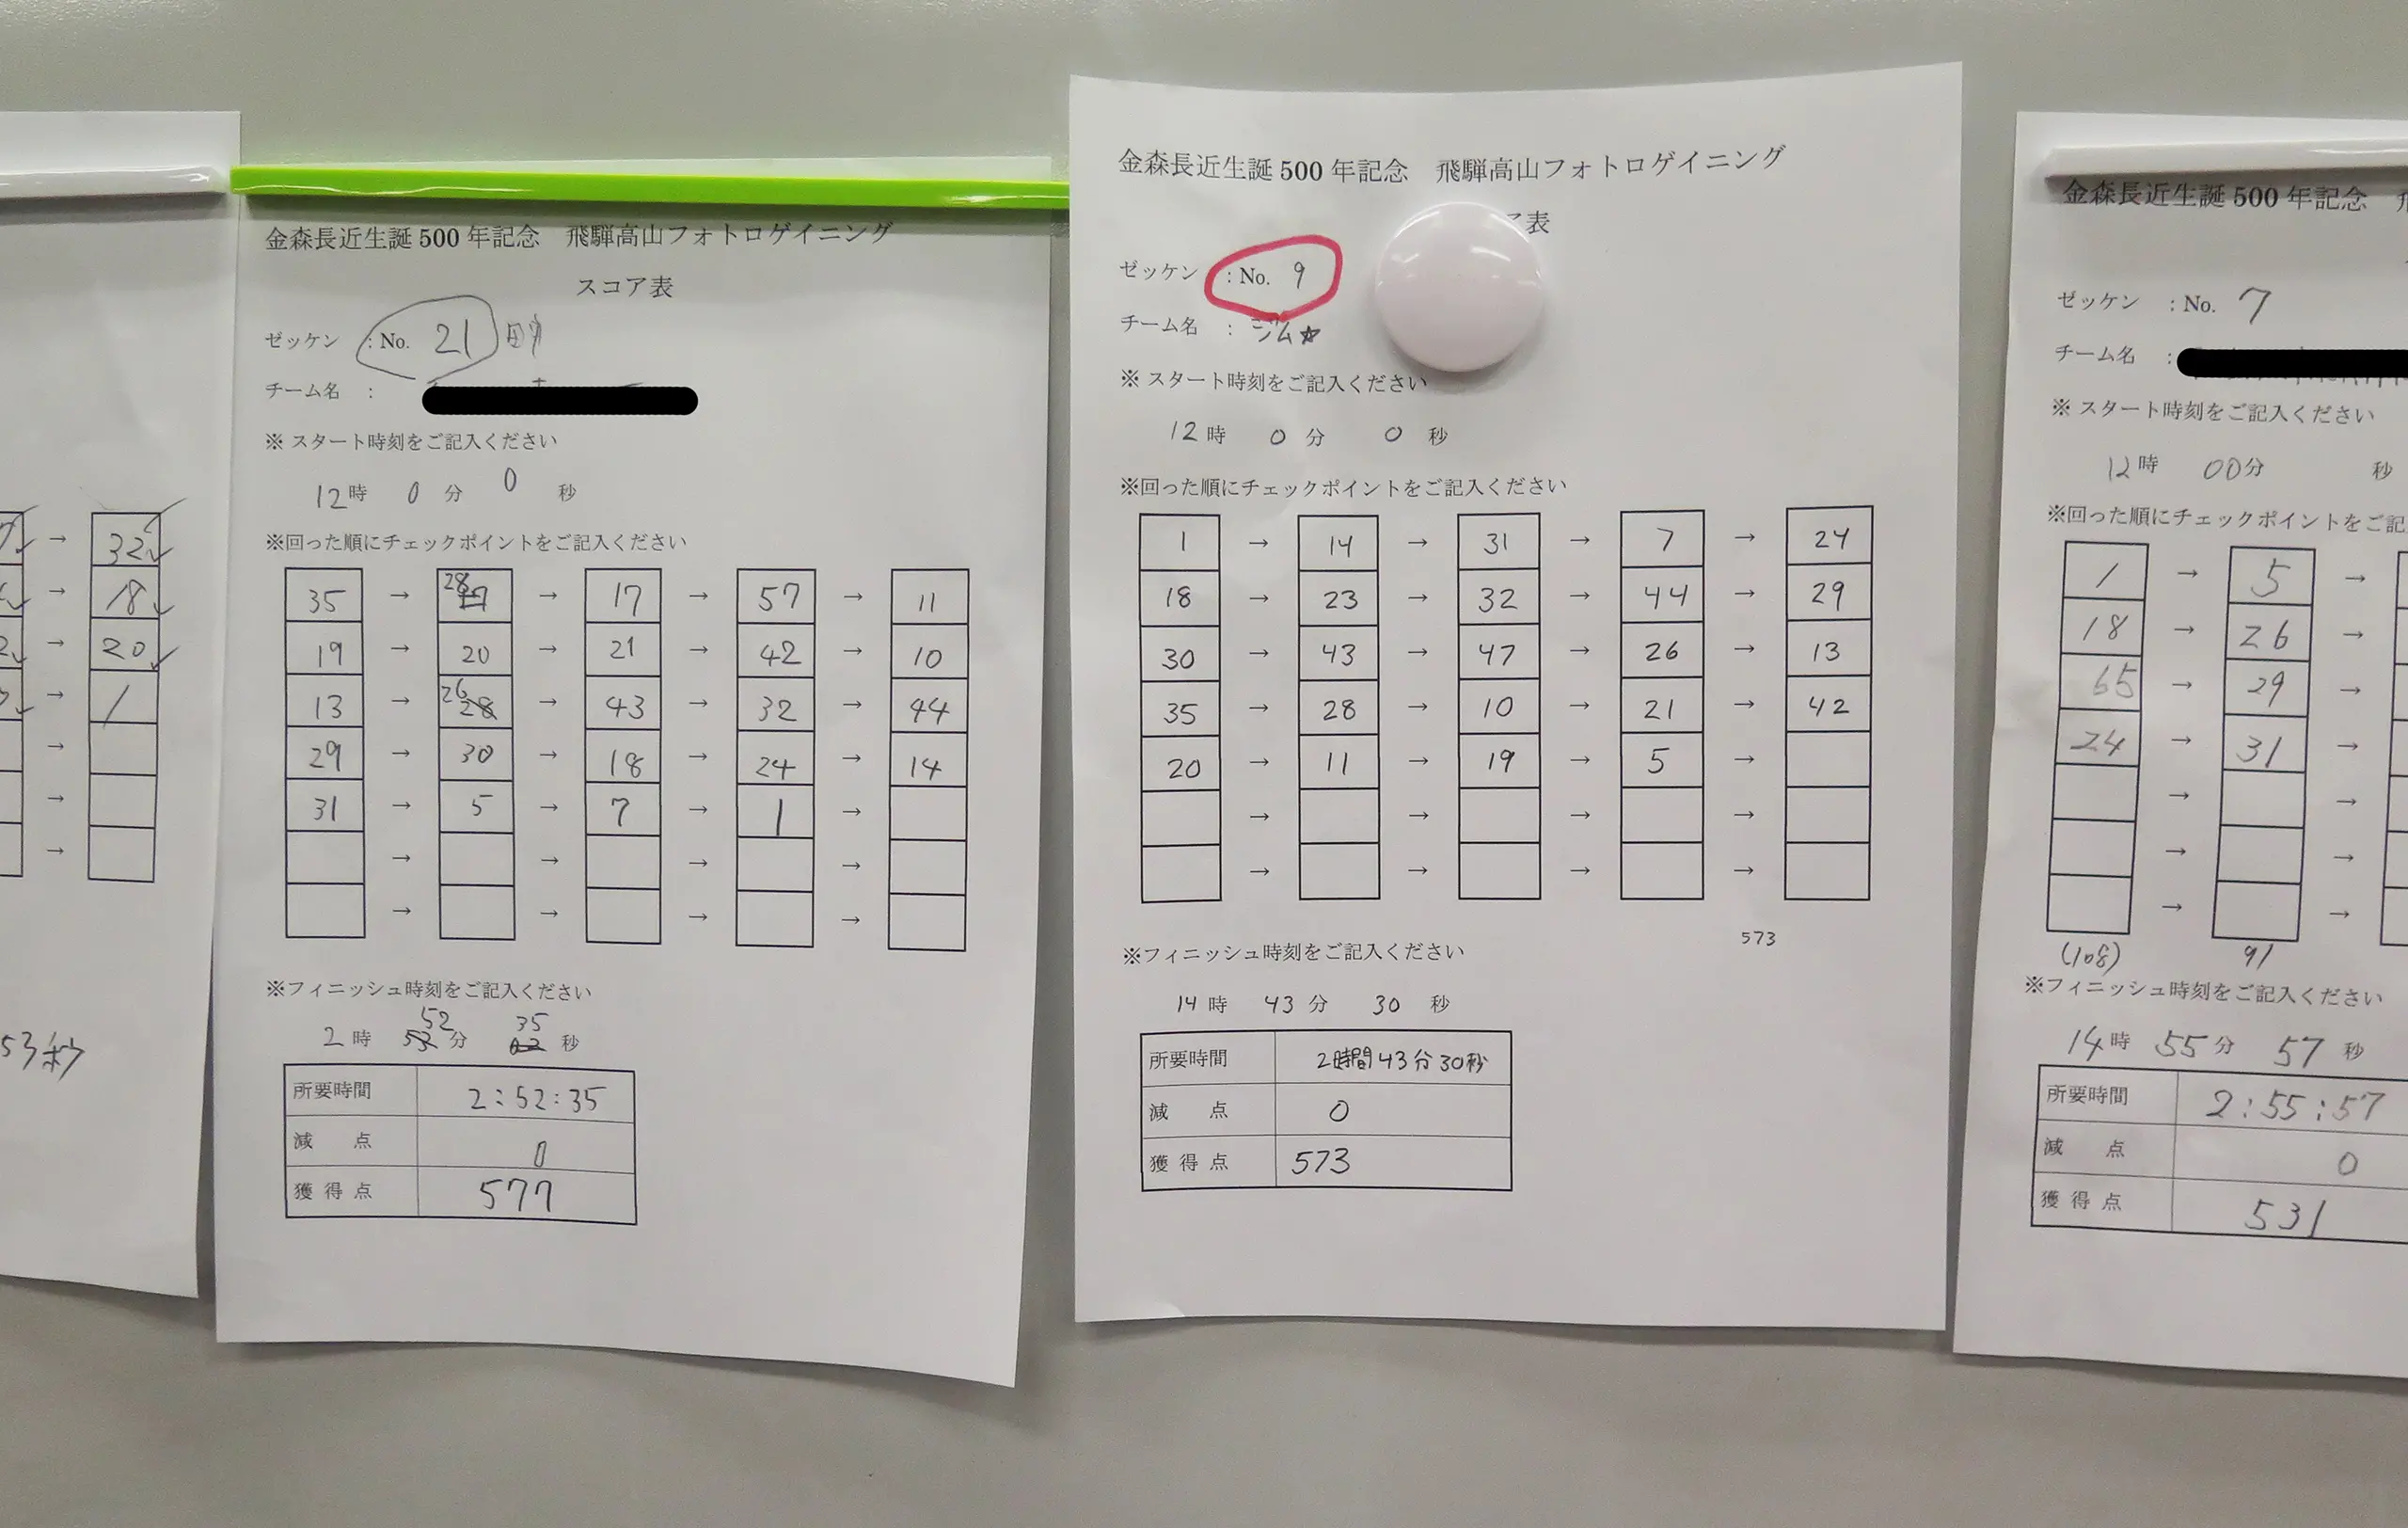 32
18
20
1
53秒
金森長近生誕500年記念 飛騨高山フォトロゲイニング
スコア表
ゼッケン :No. 21
チーム名 :
※ スタート時刻をご記入ください
12時 0分 0秒
※回った順にチェックポイントをご記入ください
35 → 28 → 17 → 57 → 11
19 → 20 → 21 → 42 → 10
13 → 26 28 → 43 → 32 → 44
29 → 30 → 18 → 24 → 14
31 → 5 → 7 → 1 →
→ → → →
→ → → →
※フィニッシュ時刻をご記入ください
2時 52分 35秒
所要時間 2:52:35
減 点 0
獲得点 577
金森長近生誕500年記念 飛騨高山フォトロゲイニング
表
ゼッケン :No. 9
チーム名 : ジム☆
※ スタート時刻をご記入ください
12時 0分 0秒
※回った順にチェックポイントをご記入ください
1 → 14 → 31 → 7 → 24
18 → 23 → 32 → 44 → 29
30 → 43 → 47 → 26 → 13
35 → 28 → 10 → 21 → 42
20 → 11 → 19 → 5 →
→ → → →
→ → → →
573
※フィニッシュ時刻をご記入ください
14時 43分 30秒
所要時間 2時間43分30秒
減 点 0
獲得点 573
金森長近生誕500年記念
ゼッケン :No. 7
チーム名 :
※ スタート時刻をご記入ください
12時 00分 秒
※回った順にチェックポイントをご記
1 → 5 →
18 → 26 →
65 → 29 →
24 → 31 →
→ →
→ →
→ →
(108) 91
※フィニッシュ時刻をご記入ください
14時 55分 57秒
所要時間 2:55:57
減 点 0
獲得点 531